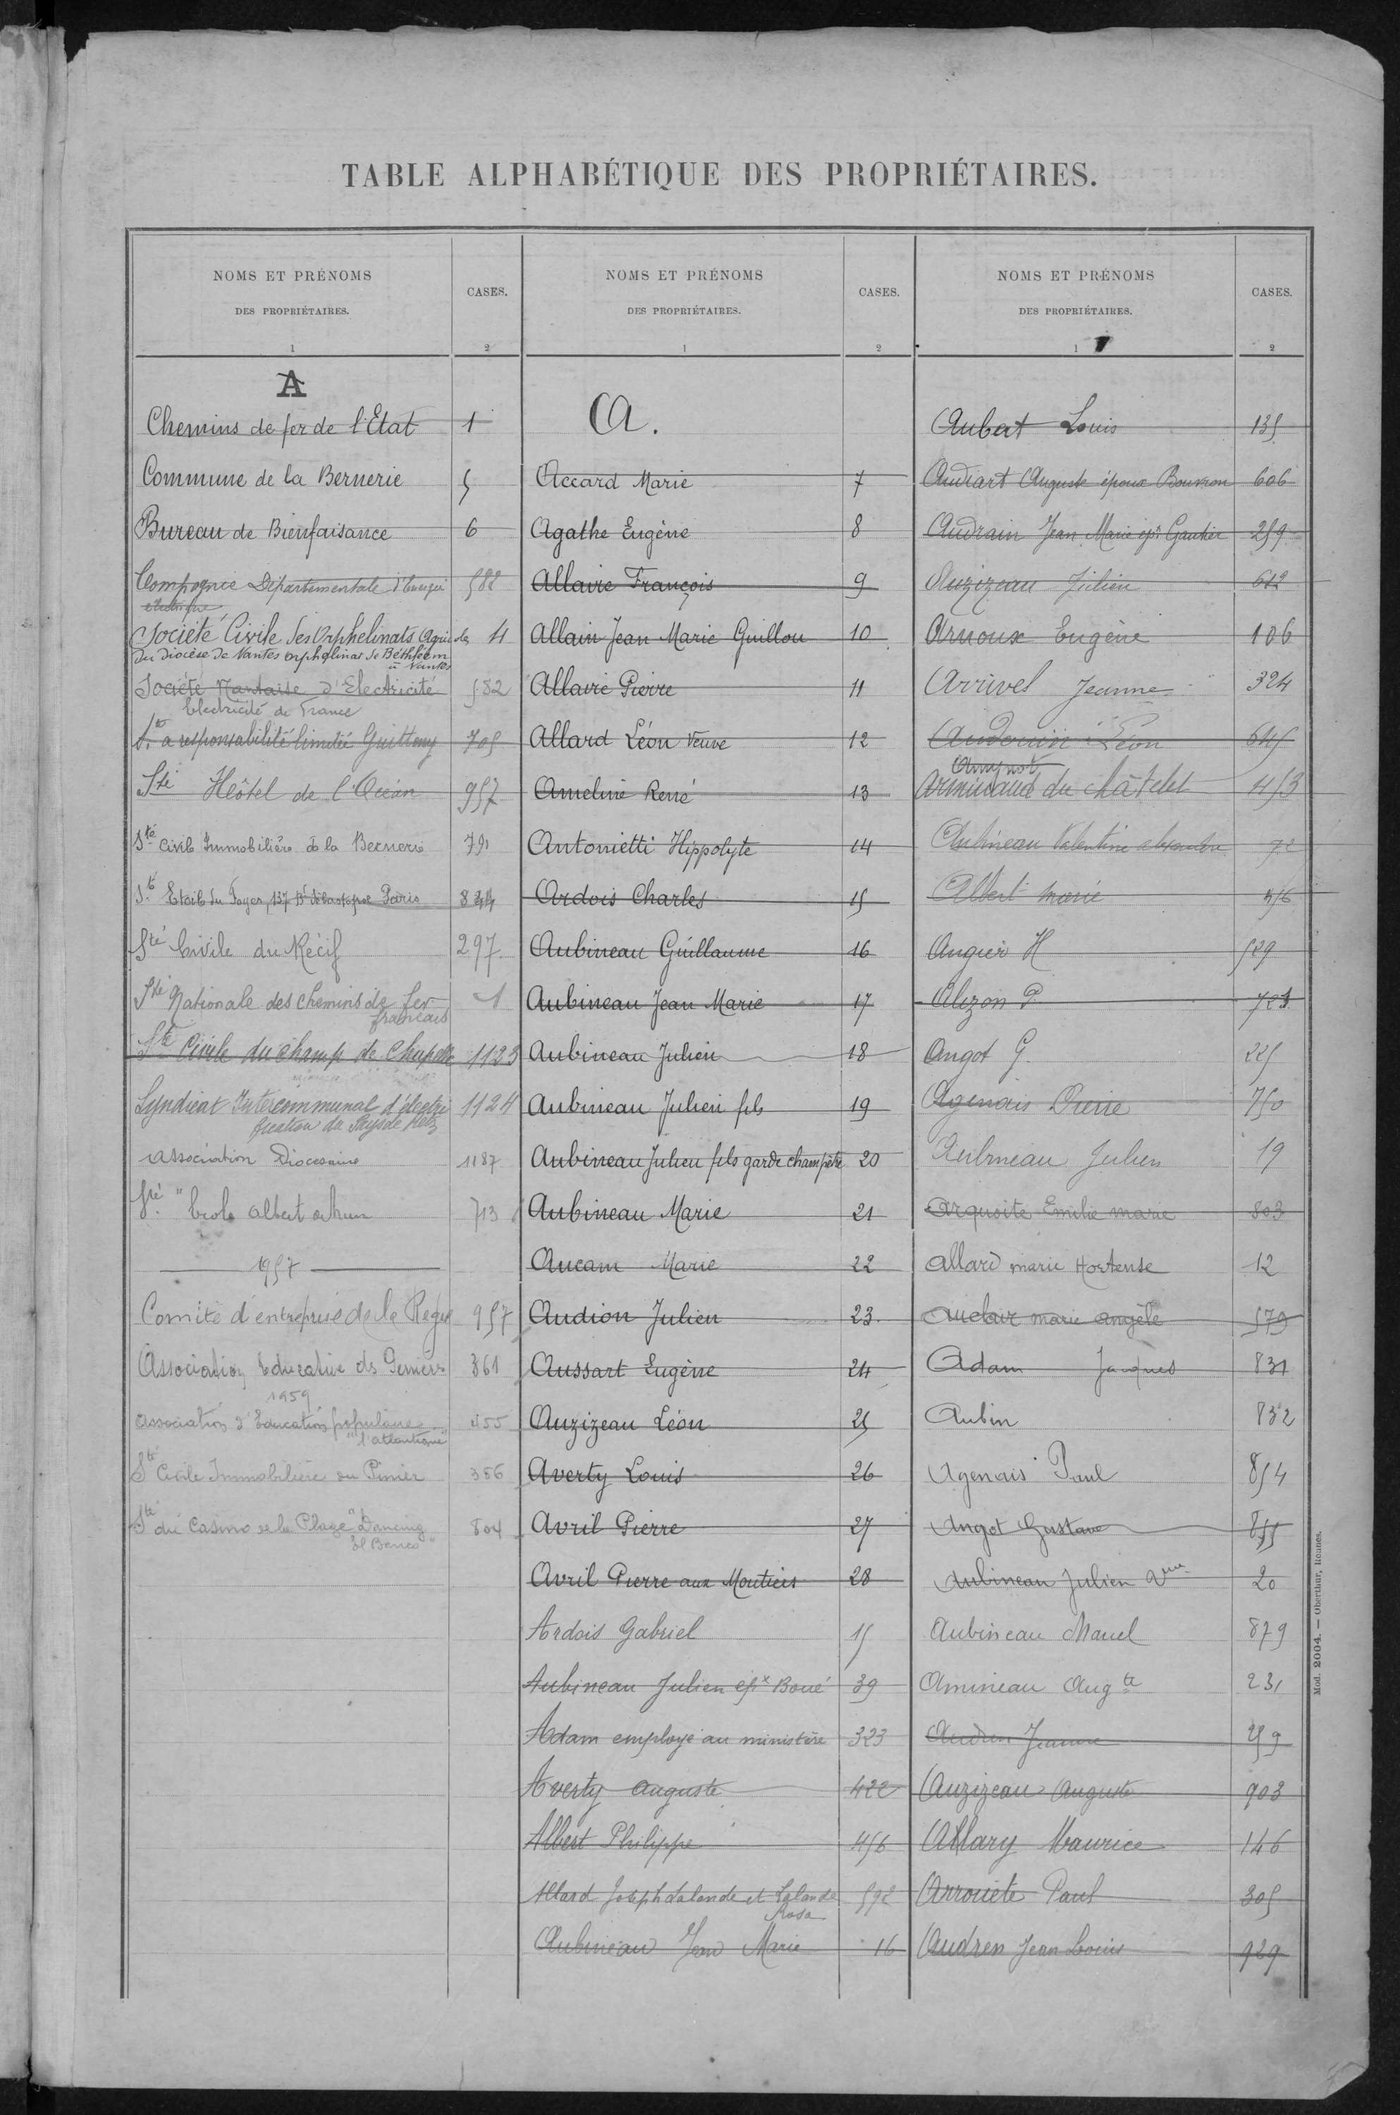 TABLE ALPHABÉTIQUE DES PROPRIÉTAIRES.
NOMS ET PRÉNOMS
DES PROPRIÉTAIRES.
1
CASES.
2
A
Chemins de fer de l'Etat 1
Commune de la Bernerie 5
Bureau de Bienfaisance 6
Compagnie Départementale d'Energie 582
électrique
Société Civile des Orphelinats Agricoles 4
du diocèse de Nantes orphelinat de Béthléem
à Nantes
Société Nantaise d'Electricité 582
Electricité de France
Sté a responsabilité limitée Guitteny 705
Sté Hôtel de l'Océan 957
Sté Civile Immobilière de la Bernerie 791
Sté Etoile du Foyer, 137 Bd Sébastopol Paris 844
Sté Civile du Récif 297
Sté Nationale des chemins de fer 1
français
Sté Civile du champ de Chapelle 1123
Syndicat Intercommunal d'électri 1124
fication du Pays de Retz
Association Diocésaine 1187
Sté "Ecole Albert de Mun 713
1957
Comité d'entreprise de la Régie 957
Association Educative des 361
1959
Association d'Education populaire 455
"l'atlantique"
Sté Civile Immobilière du Pinier 356
Sté du Casino de la Plage "Dancing 804
NOMS ET PRÉNOMS
DES PROPRIÉTAIRES.
1
CASES.
2
A.
Accard Marie 7
Agathe Eugène 8
Allaire François 9
Allain Jean Marie Guillou 10
Allaire Pierre 11
Allard Léon Veuve 12
Ameline René 13
Antonietti Hippolyte 14
Ardois Charles 15
Aubineau Guillaume 16
Aubineau Jean Marie 17
Aubineau Julien 18
Aubineau Julien fils 19
Aubineau Julien fils garde champêtre 20
Aubineau Marie 21
Aucam Marie 22
Audion Julien 23
Aussart Eugène 24
Auzizeau Léon 25
Averty Louis 26
Avril Pierre 27
Avril Pierre aux Moutiers 28
Ardois Gabriel 15
Aubineau Julien épx Boué 39
Adam employé au ministère 323
Averty Auguste 422
Albert Philippe 456
Allard Joseph Lalande et Lalande 592
Rosa
Aubineau Jean Marie 16
NOMS ET PRÉNOMS
DES PROPRIÉTAIRES.
1
CASES.
2
Aubert Louis 135
Audiart Auguste époux Bouvron 606
Audrain Jean Marie épx Gautier 259
Auzizeau Julien 612
Arnoux Eugène 106
Arrivel Jeanne 324
Audouin Léon 645
du Châtelet 453
Aubineau Valentine Alexandre 72
Albert Marie 456
Angier H 529
Alizon P. 721
Angot G. 225
Agenais Pierre 750
Aubineau Julien 19
Arquoite Emilie Marie 803
Allard marie Hortense 12
Auclair marie angèle 579
Adam Jacques 831
Aubin 832
Agenais Paul 854
Angot Gustave 855
Aubineau Julien Vve 20
Aubineau Marcel 879
Amineau Augte 231
Audren Jeanne 259
Auzizeau Auguste 903
Allary Maurice 146
Arrouète Paul 305
Audren Jean Louis 929
Mod. 2004. — Oberthur, Rennes.